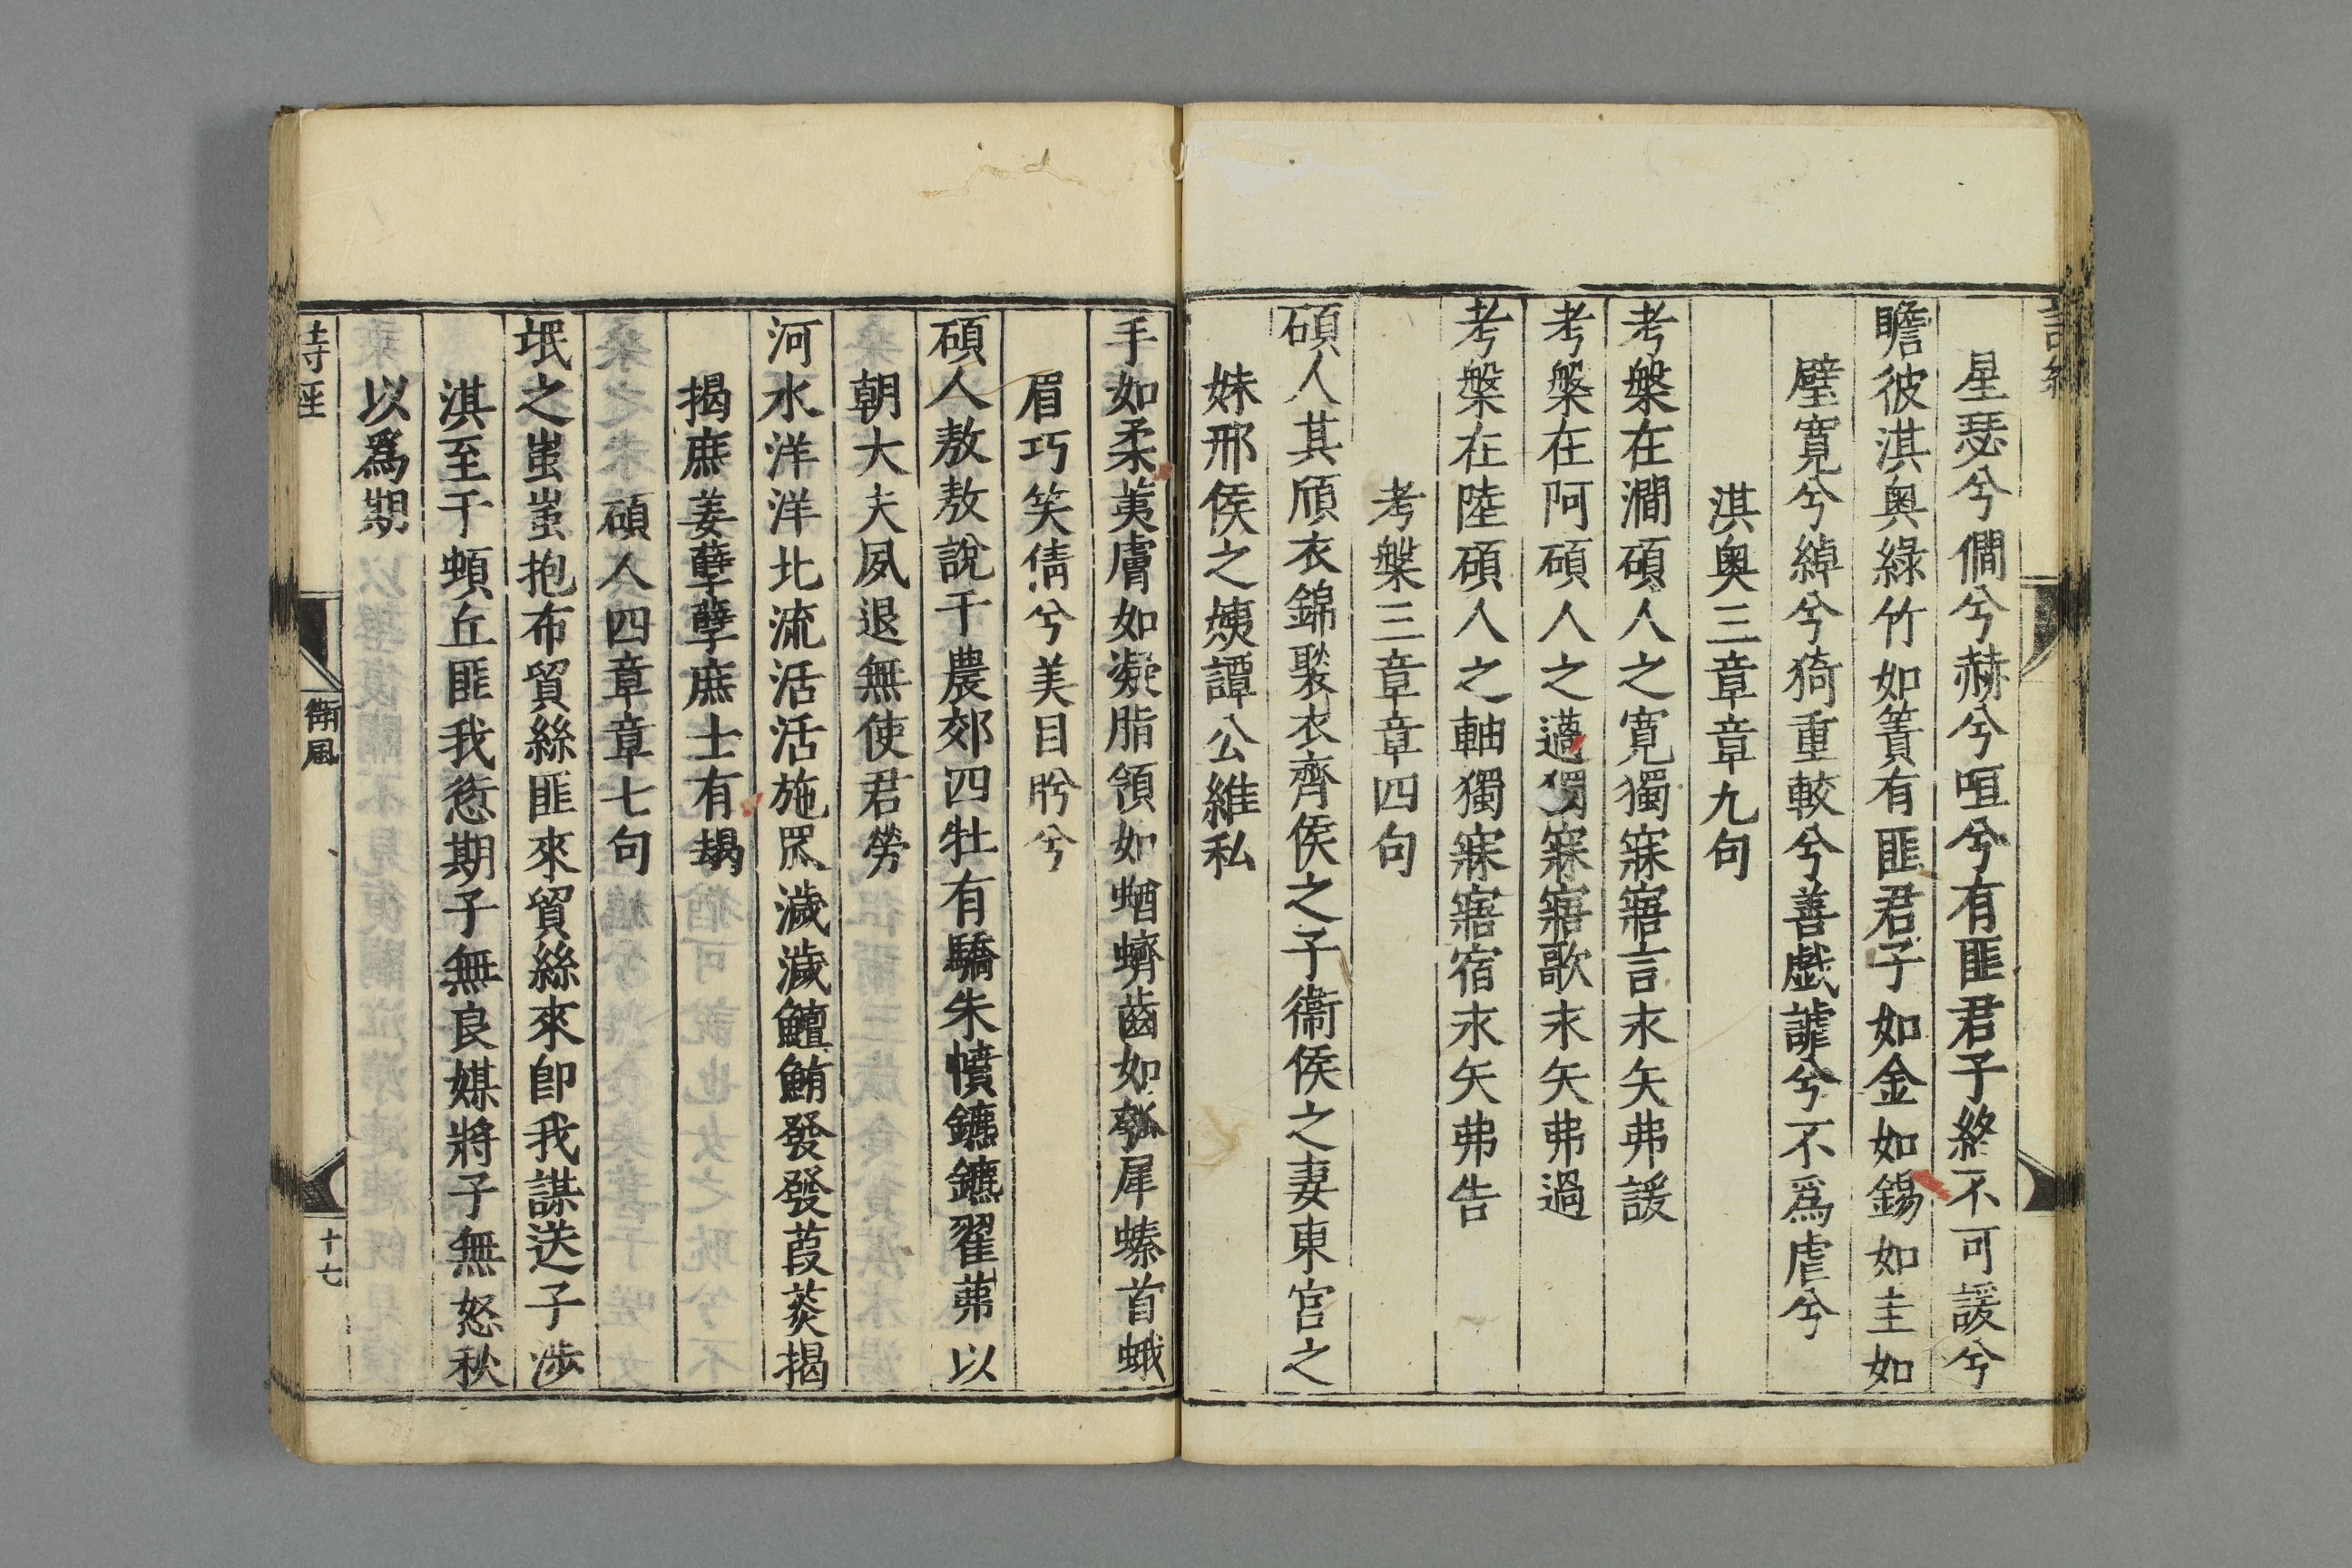 詩經
星瑟兮僩兮赫兮咺兮有匪君子終不可諼兮
瞻彼淇奧綠竹如簀有匪君子如金如錫如圭如
璧寬兮綽兮猗重較兮善戲謔兮不爲虐兮
淇奧三章章九句
考槃在澗碩人之寬獨寐寤言永矢弗諼
考槃在阿碩人之薖獨寐寤歌永矢弗過
考槃在陸碩人之軸獨寐寤宿永矢弗告
考槃三章章四句
碩人其頎衣錦褧衣齊侯之子衞侯之妻東宮之
妹邢侯之姨譚公維私
手如柔荑膚如凝脂領如蝤蠐齒如瓠犀螓首蛾
眉巧笑倩兮美目盻兮
碩人敖敖說于農郊四牡有驕朱幩鑣鑣翟茀以
朝大夫夙退無使君勞
河水洋洋北流活活施罛濊濊鱣鮪發發葭菼揭
揭庶姜孽孽庶士有朅
碩人四章章七句
氓之蚩蚩抱布貿絲匪來貿絲來卽我謀送子涉
淇至于頓丘匪我愆期子無良媒將子無怒秋
以爲期
詩經
衞風
十七